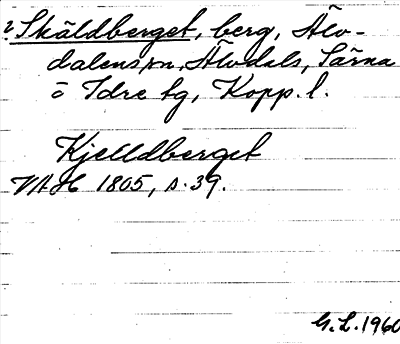 ? Skäldberget, berg, Älv-
dalens sn, Älvdals, Särna
o Idre tg, Kopp. l.
Kjelldberget
VAH 1805, s. 39.
G.L. 1960